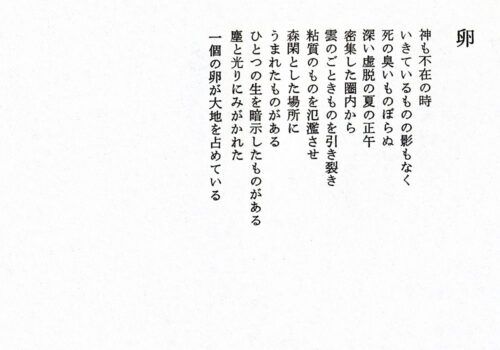 卵
神も不在の時
いきているものの影もなく
死の臭いものぼらぬ
深い虚脱の夏の正午
密集した圏内から
雲のごときものを引き裂き
粘質のものを氾濫させ
森閑とした場所に
うまれたものがある
ひとつの生を暗示したものがある
塵と光りにみがかれた
一個の卵が大地を占めている